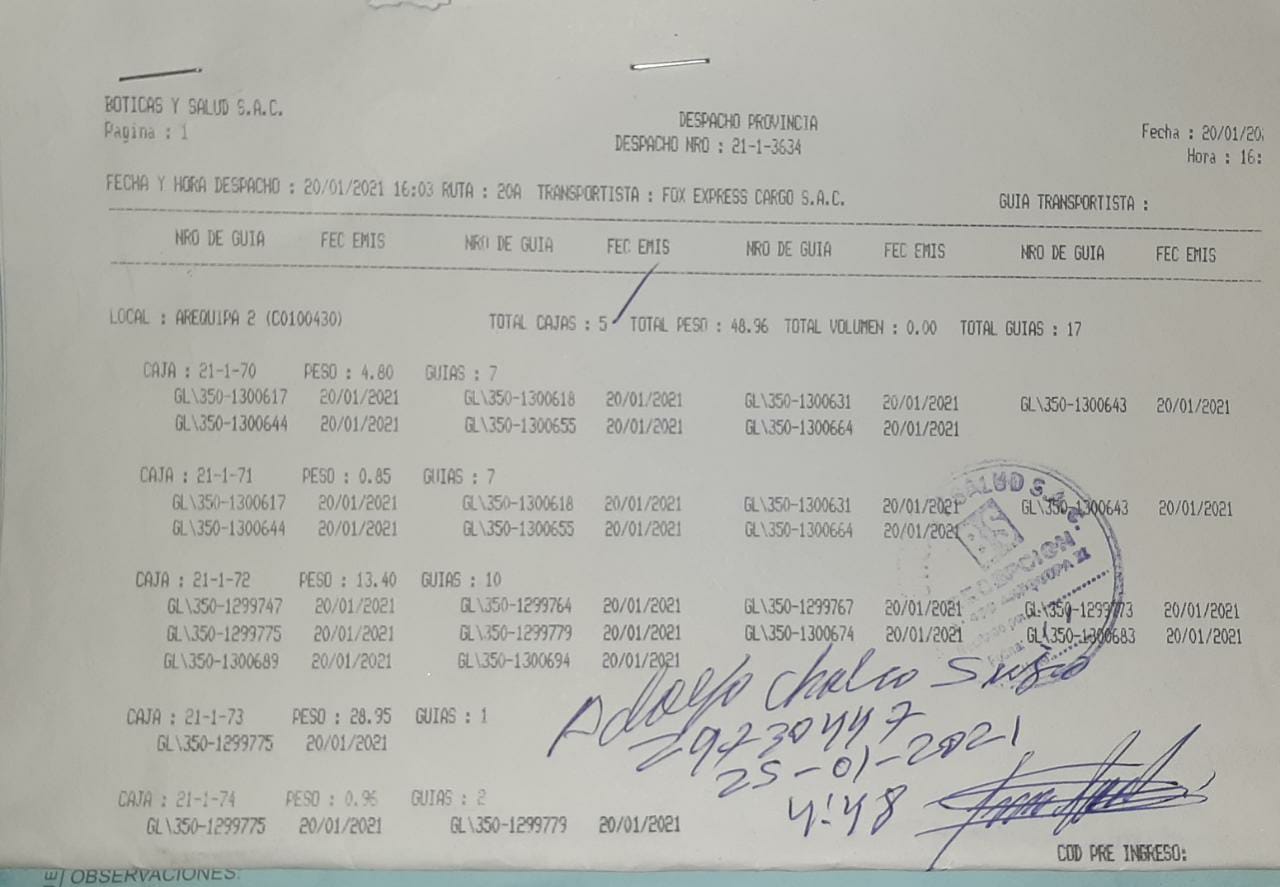 BOTICAS Y SALUD S.A.C.
Pagina : 1
DESPACHO PROVINCIA
DESPACHO NRO : 21-1-3634
Fecha : 20/01/20
Hora : 16:
FECHA Y HORA DESPACHO : 20/01/2021 16:03 RUTA : 20A TRANSPORTISTA : FOX EXPRESS CARGO S.A.C. GUIA TRANSPORTISTA :
NRO DE GUIA FEC EMIS NRO DE GUIA FEC EMIS NRO DE GUIA FEC EMIS NRO DE GUIA FEC EMIS
LOCAL : AREQUIPA 2 (C0100430) TOTAL CAJAS : 5 TOTAL PESO : 48.96 TOTAL VOLUMEN : 0.00 TOTAL GUIAS : 17
CAJA : 21-1-70 PESO : 4.80 GUIAS : 7
GL\350-1300617 20/01/2021 GL\350-1300618 20/01/2021 GL\350-1300631 20/01/2021 GL\350-1300643 20/01/2021
GL\350-1300644 20/01/2021 GL\350-1300655 20/01/2021 GL\350-1300664 20/01/2021
CAJA : 21-1-71 PESO : 0.85 GUIAS : 7
GL\350-1300617 20/01/2021 GL\350-1300618 20/01/2021 GL\350-1300631 20/01/2021 GL\350-1300643 20/01/2021
GL\350-1300644 20/01/2021 GL\350-1300655 20/01/2021 GL\350-1300664 20/01/2021
CAJA : 21-1-72 PESO : 13.40 GUIAS : 10
GL\350-1299747 20/01/2021 GL\350-1299764 20/01/2021 GL\350-1299767 20/01/2021 GL\350-1299773 20/01/2021
GL\350-1299775 20/01/2021 GL\350-1299779 20/01/2021 GL\350-1300674 20/01/2021 GL\350-1300683 20/01/2021
GL\350-1300689 20/01/2021 GL\350-1300694 20/01/2021
CAJA : 21-1-73 PESO : 28.95 GUIAS : 1
GL\350-1299775 20/01/2021
CAJA : 21-1-74 PESO : 0.96 GUIAS : 2
GL\350-1299775 20/01/2021 GL\350-1299779 20/01/2021
SALUD S.A.C.
BS
RECEPCION
AREQUIPA II
Adolfo Chalco
29730447
25-01-2021
4:48
COD PRE INGRESO:
OBSERVACIONES: